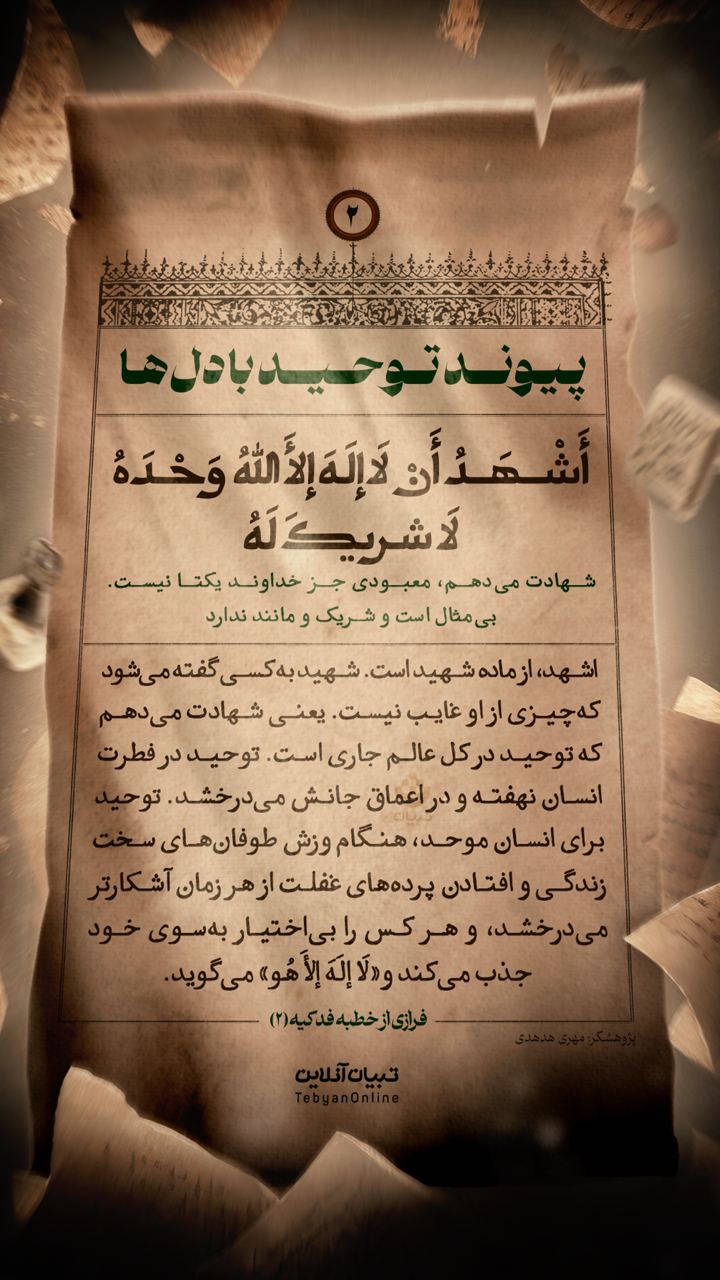 ۲
پیوند توحید با دل‌ها
أَشْهَدُ أَنْ لَا إِلَهَ إِلاَّ اللهُ وَحْدَهُ
لَا شریکَ لَهُ
شهادت می‌دهم، معبودی جز خداوند یکتا نیست.
بی‌مثال است و شریک و مانند ندارد
اشهد، از ماده شهید است. شهید به کسی گفته می‌شود
که چیزی از او غایب نیست. یعنی شهادت می‌دهم
که توحید در کل عالم جاری است. توحید در فطرت
انسان نهفته و در اعماق جانش می‌درخشد. توحید
برای انسان موحد، هنگام وزش طوفان‌های سخت
زندگی و افتادن پرده‌های غفلت از هر زمان آشکارتر
می‌درخشد، و هر کس را بی‌اختیار به‌سوی خود
جذب می‌کند و «لَا إلَهَ إلاَّ هُو» می‌گوید.
فرازی از خطبه فدکیه (۲)
پژوهشگر: مهری هدهدی
تبیان آنلاین
TebyanOnline
تبیان